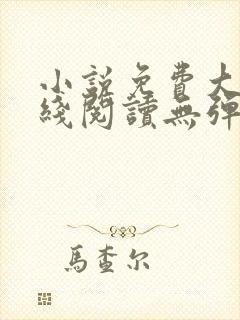 小說免費大
綫閱讀無彈
馬查尔